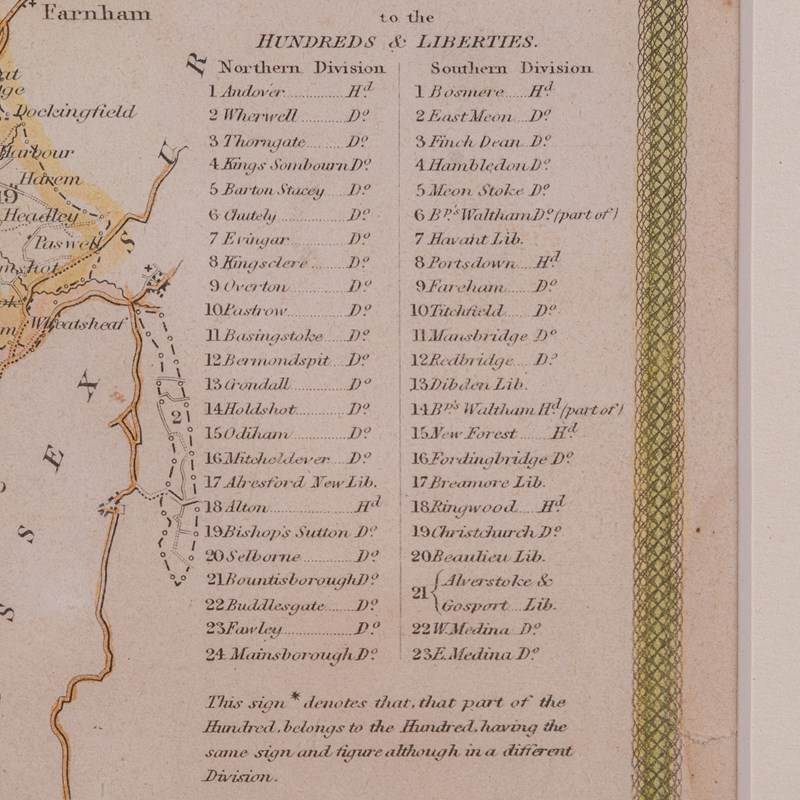 Farnham
to the
HUNDREDS & LIBERTIES.
Northern Division
1 Andover Hd.
2 Wherwell Do.
3 Thorngate Do.
4 Kings Sombourn Do.
5 Barton Stacey Do.
6 Chutely Do.
7 Evingar Do.
8 Kingsclere Do.
9 Overton Do.
10 Pastrow Do.
11 Basingstoke Do.
12 Bermondspit Do.
13 Crondall Do
14 Holdshot Do.
15 Odiham Do.
16 Mitcheldever Do.
17 Alresford New Lib.
18 Alton Hd
19 Bishop's Sutton Do.
20 Selborne Do.
21 Bountisborough Do.
22 Buddlesgate Do.
23 Fawley Do.
24 Mainsborough Do.
Southern Division
1 Bosmere Hd.
2 East Meon Do.
3 Finch Dean Do.
4 Hambledon Do.
5 Meon Stoke Do.
6 Bp's Waltham Do. (part of)
7 Havant Lib.
8 Portsdown Hd.
9 Fareham Do.
10 Titchfield Do.
11 Mansbridge Do.
12 Redbridge Do.
13 Dibden Lib.
14 Bp's Waltham Hd. (part of)
15 New Forest Hd.
16 Fordingbridge Do.
17 Breamore Lib.
18 Ringwood Hd.
19 Christchurch Do.
20 Beaulieu Lib.
21 { Alverstoke &
Gosport Lib.
22 W. Medina Do.
23 E. Medina Do.
This sign * denotes that, that part of the
Hundred, belongs to the Hundred, having the
same sign and figure although in a different
Division.
Dockingfield
Harbour
Harem
19
Headley
Paswell
Wheatsheaf
2
R
U
S
X
E
S
S